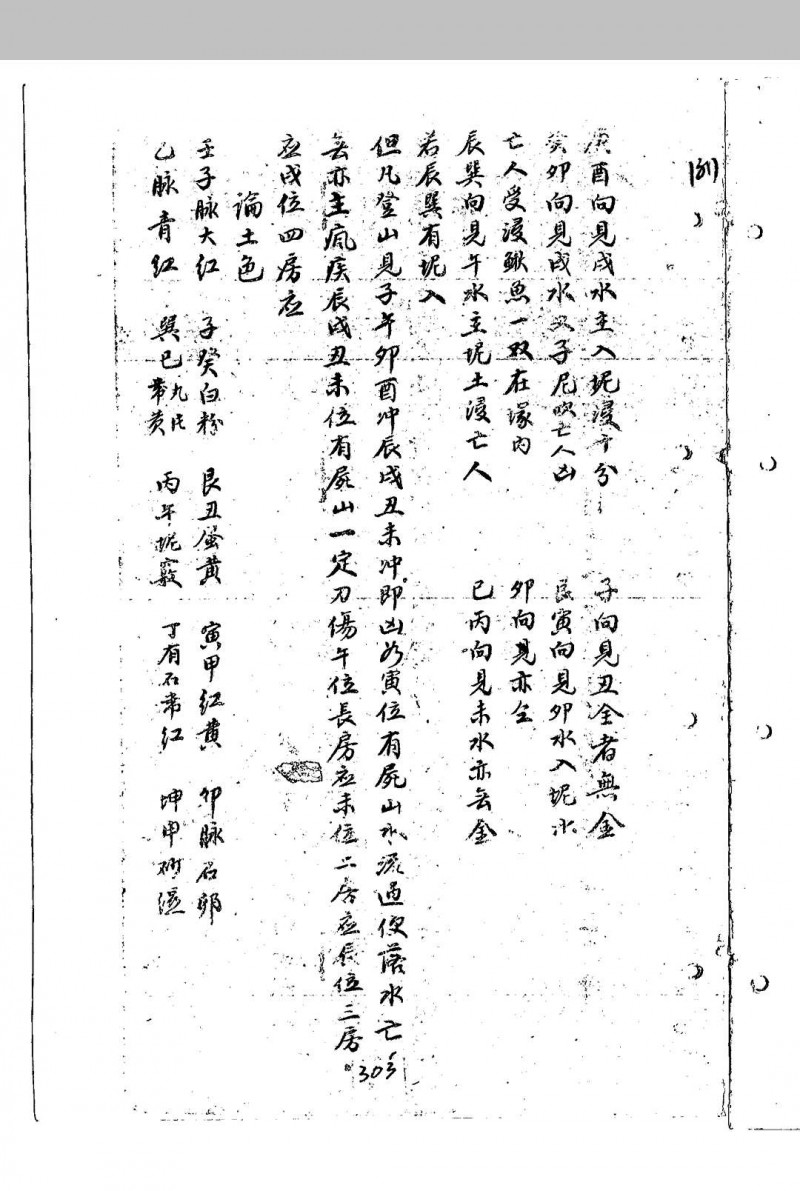 酉向見戌水主入坭浸十分　子向見丑全者無金
癸卯向見戌水子尼吹亡人凶　寅向見卯水入坭水
亡人受浸鰍魚一双在塚内　卯向見亦仝
辰巽向見午水主坭土浸亡人　巳丙向見未水亦無金
若辰巽有坭入
但凡登山見子午卯酉冲辰戌丑未冲即凶如寅位有屍山水流過便落水亡
無亦主瘋疾辰戌丑未位有屍山一定刀傷午位長房应未位二房应辰位三房
应戌位四房应
論土色
壬子脉大红　子癸白粉　艮丑蛋黄　寅甲红黄　卯脉石卵
乙脉青红　巽巳带黄　丙午坭竅　丁有石带红　坤申砂湿
303